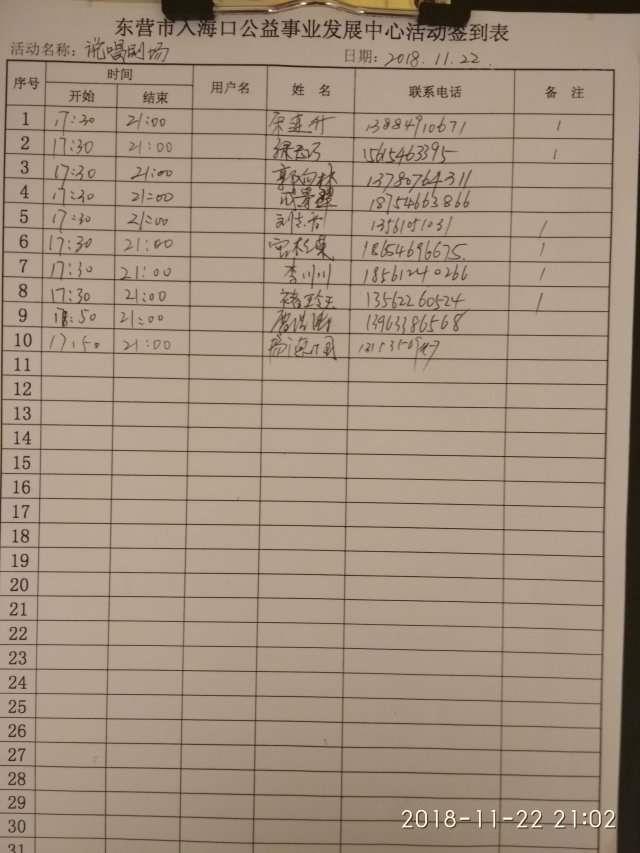 东营市入海口公益事业发展中心活动签到表
活动名称: 说唱剧场 日期: 2018.11.22.
序号 时间 用户名 姓 名 联系电话 备 注
开始 结束
1 17:30 21:00 13884910671 1
2 17:30 21:00 15615463395 1
3 17:30 21:00 13780764311
4 17:30 21:00 18754663866
5 17:30 21:00 13561051031 1
6 17:30 21:00 18654696675 1
7 17:30 21:00 李川川 18561240266 1
8 17:30 21:00 13562260524 1
9 21:00 13963386568
10 17:50 21:00
11
12
13
14
15
16
17
18
19
20
21
22
23
24
25
26
27
28
29
30
31
2018-11-22 21:02